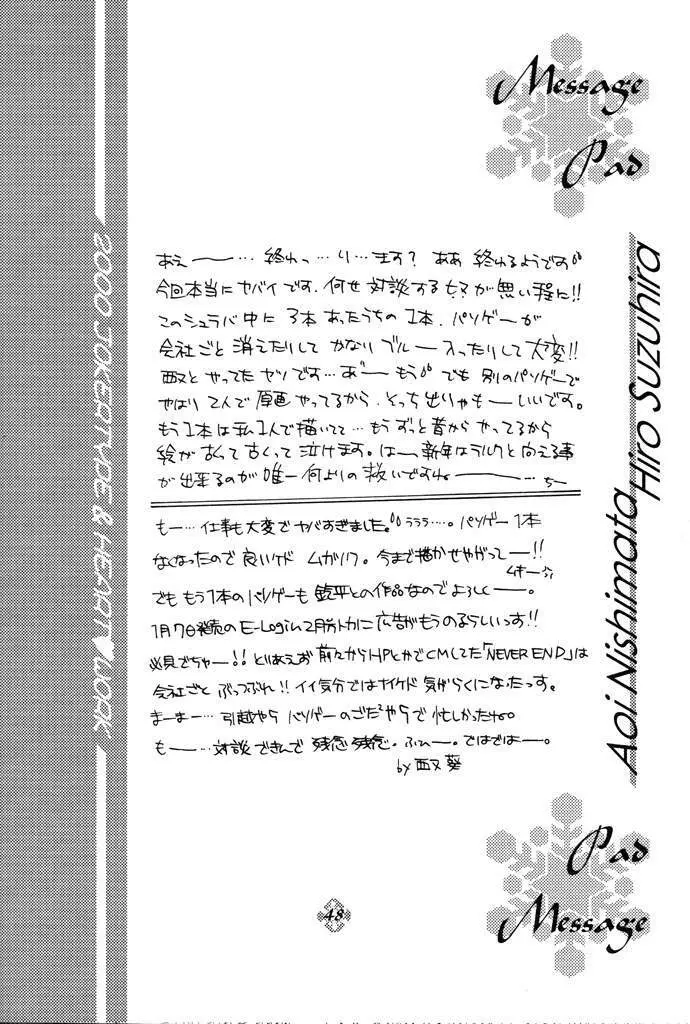 Message
Pad
あえー――… 終わっ…り…ます？ ああ 終わるようです
今回本当にヤバイです. 何せ 対談するヒマが無い程に!!
このシュラバ中に 3本 あったうちの 1本. パソゲーが
会社ごと 消えたりして かなり ブルー 入ったりして 大変!!
西又と やってた ヤツです…あ゛ー もう でも 別のパソゲーで
やはり 2人で 原画 やってるから. そっち 出りゃも――いいです。
もう1本は 私1人で描いてて…もう ずっと 昔から やってるから
絵が 古くて 古くって 泣けます。はーっ 新年はラルクと 向える事
が 出来るのが 唯一 何よりの 救いですね――――…
もー… 仕事も 大変で ヤバすぎました。うううう…。パソゲー 1本
なくなったので 良いケド ムカツク。今まで描かせやがって―!!
ムキー
でも もう1本の パソゲーも 鈴平との作品なので よろしくー。
1月7日発売の E-Login 2月号トカに 広告が もうのるらしいっす!!
必見でちゃー!! とりあえず 前々からHPとかで CMしてた「NEVER END」は
会社ごと ぶっつぶれ!! イイ気分では ナイケド 気がらくになたっす。
まーまー… 引越やら パソゲーの ごたごたやらで 忙しかったね
もー… 対談 できんで 残念 残念。ふひー。ではではー。
by 西又 葵
Hiro Suzuhira
Aoi Nishimata
2000 JOKERTYPE & HEART♥WORK
Pad
Message
48